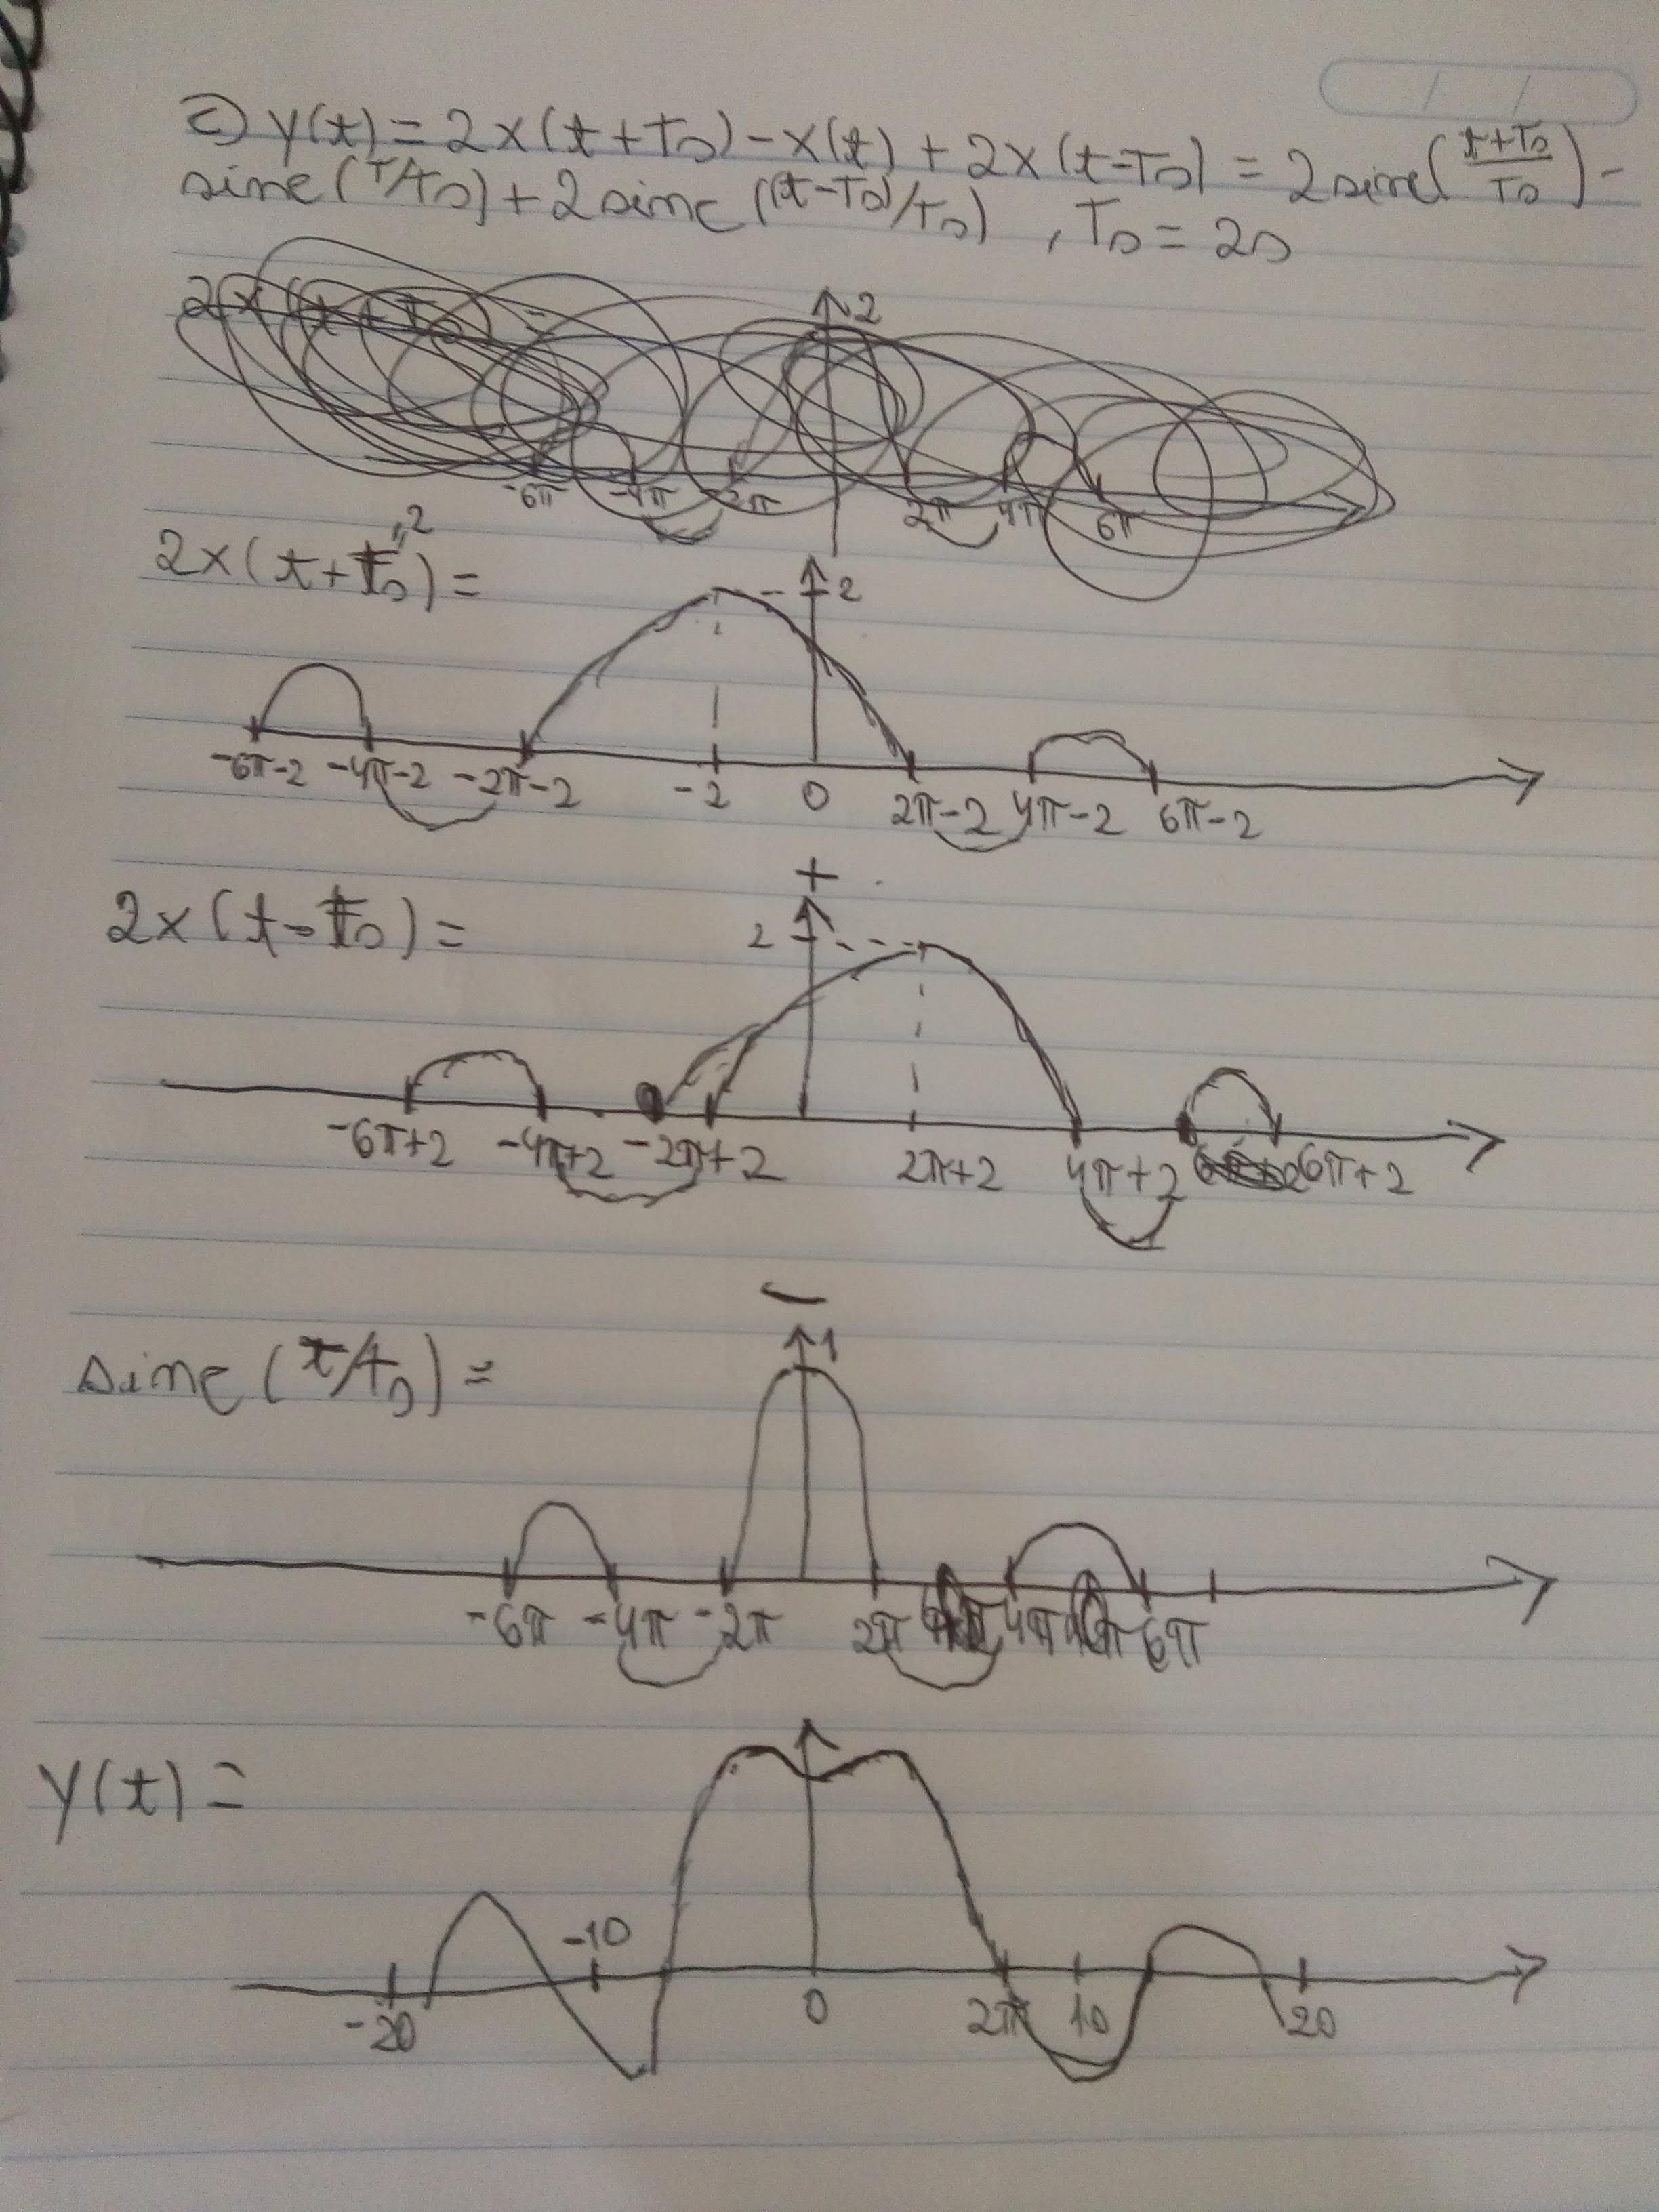 c) y(t) = 2x(t+T0) - x(t) + 2x(t-T0) = 2sinc((t+T0)/T0) -
sinc(T/T0) + 2sinc((t-T0)/T0) , T0 = 2s
2x(t+T0 =
2
-6π -4π -2π 2π 4π 6π
2x(t+T0) = "2
2
-6π-2 -4π-2 -2π-2 -2 0 2π-2 4π-2 6π-2
+
2x(t-T0) =
2
-6π+2 -4π+2 -2π+2 2π+2 4π+2 6π+2
-
sinc(t/T0) =
1
-6π -4π -2π 2π 4π 6π
y(t) =
-20 -10 0 2π 10 20